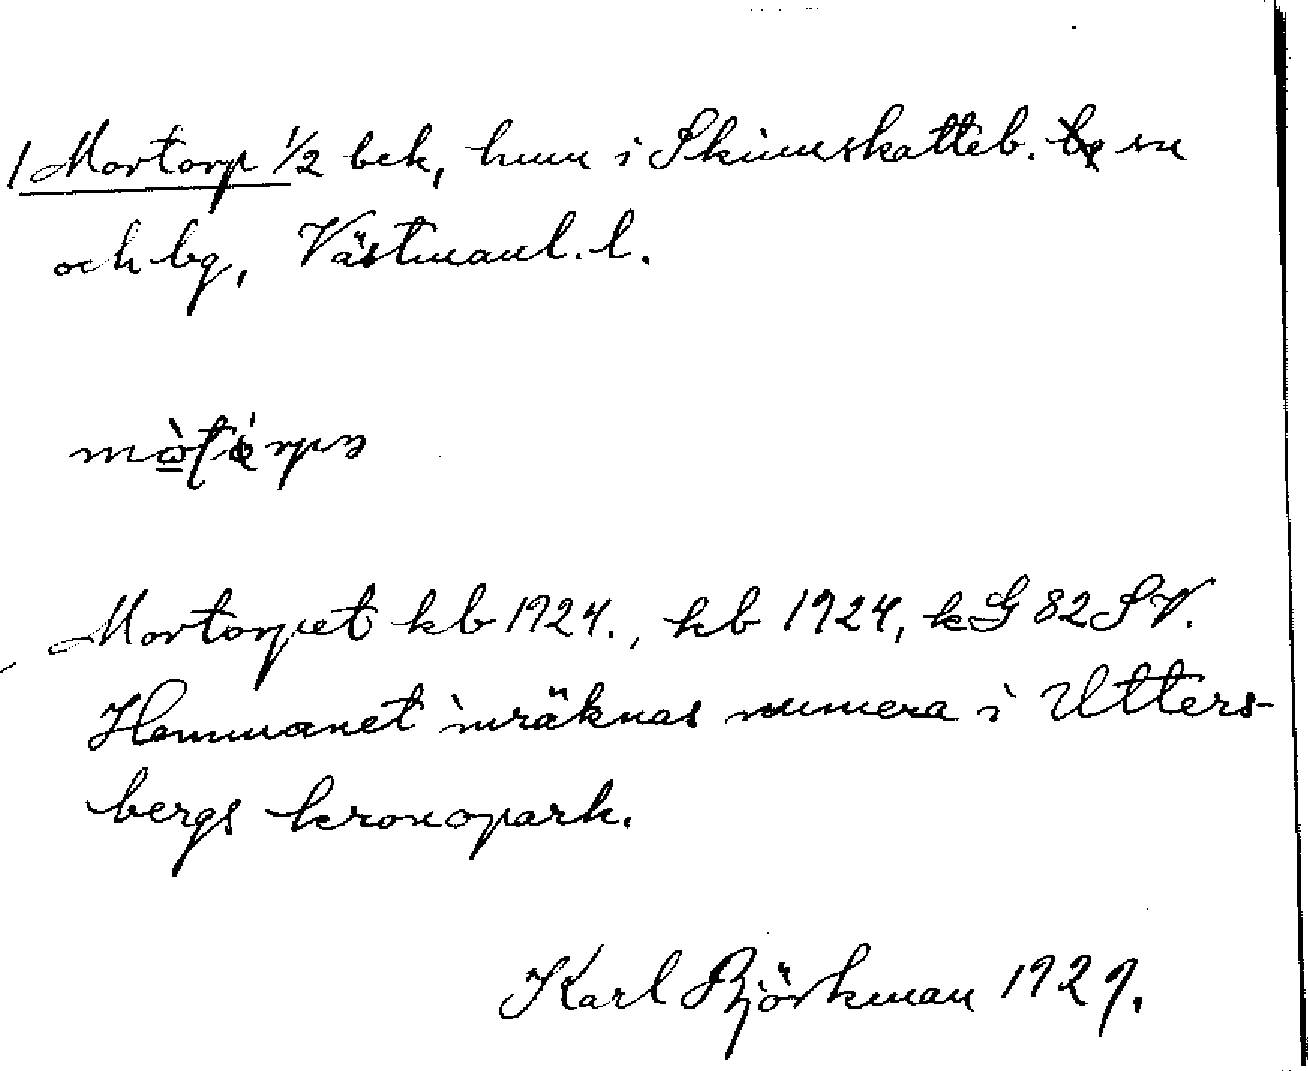 Mortorp 1/2 bek, hmn i Skinnskatteb. sn
och bg, Västmanl. l.
Mortorpet kb 1924., hb 1924, kG 82 SV.
Hemmanet inräknas numera i Utters-
bergs kronopark.
Karl Björkman 1929.